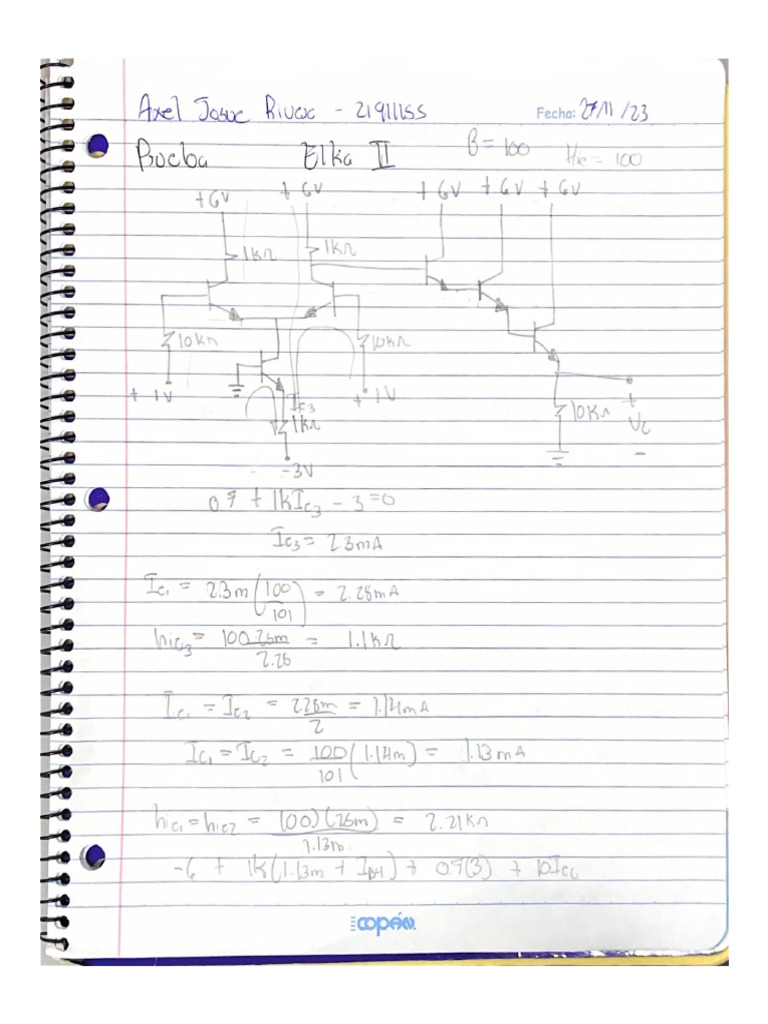 Axel Josue Rivera - 21911155 Fecha: 27/11/23
Prueba Elka II B = 100 Hie = 100
+6V + 6V + 6V + 6V + 6V
1kΩ 1kΩ
10kΩ 10kΩ
+ 1V IC3 + 1V 10kΩ + VL -
1kΩ
-3V
0.7 + 1kIC3 - 3 = 0
IC3 = 2.3mA
IC1 = 2.3m(100/101) = 2.28mA
hie3 = 100·26m/2.28 = 1.1kΩ
IC1 = IC2 = 2.28m/2 = 1.14mA
IC1 = IC2 = 100/101(1.14m) = 1.13mA
hie1 = hie2 = (100)(26m)/1.13m = 2.21kΩ
-6 + 1k(1.13m + IB4) + 0.7(3) + 10IE6
COPÁN